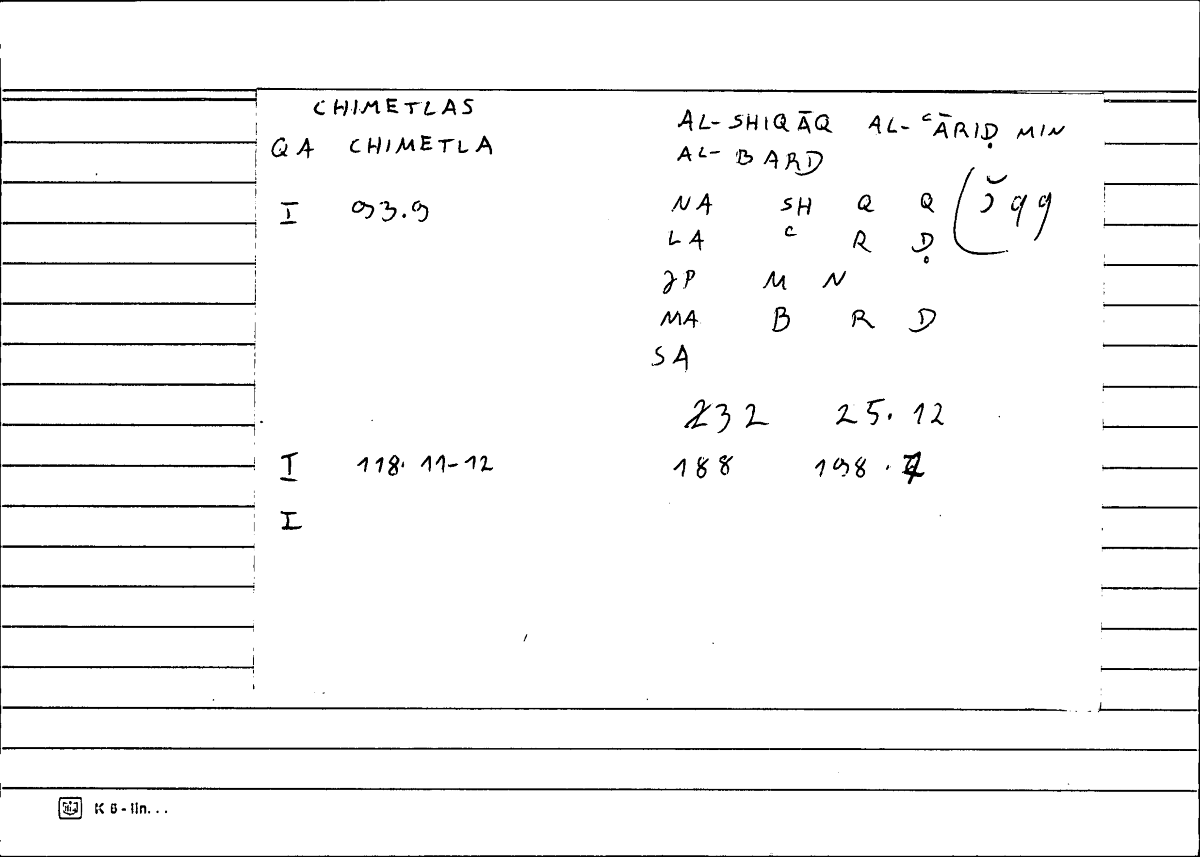 CHIMETLAS
AL-SHIQĀQ AL-ʿĀRIḌ MIN
QA CHIMETLA
AL-BARD
I 93.9
NA SH Q Q
LA ʿ R Ḍ
JP M N
MA B R D
SA
232 25.12
I 118.11-12 188 198.
I
K 6-lin...